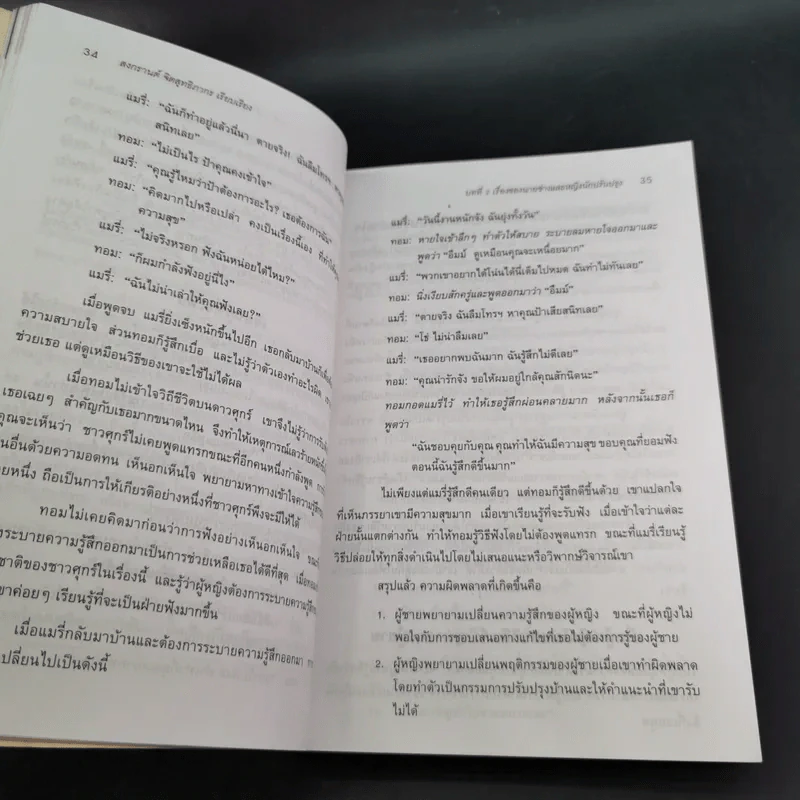 34 สงกรานต์ จิตสุทธิภากร เรียบเรียง
แมรี่: “ฉันก็ทำอยู่แล้วนี่นา ตายจริง! ฉันลืมโทรฯ
สนิทเลย”
ทอม: “ไม่เป็นไร ป้าคุณคงเข้าใจ”
แมรี่: “คุณรู้ไหมว่าป้าต้องการอะไร? เธอต้องการฉัน”
ทอม: “คิดมากไปหรือเปล่า คงเป็นเรื่องนี้เอง
ความสุข”
แมรี่: “ไม่จริงหรอก ฟังฉันหน่อยได้ไหม?”
ทอม: “ก็ผมกำลังฟังอยู่นี่ไง”
แมรี่: “ฉันไม่น่าเล่าให้คุณฟังเลย?”
เมื่อพูดจบ แมรี่ยิ่งเซ็งหนักขึ้นไปอีก เธอกลับมาบ้านก็เพื่อ
ความสบายใจ ส่วนทอมก็รู้สึกเบื่อ และไม่รู้ว่าตัวเองทำอะไรผิด
ช่วยเธอ แต่ดูเหมือนวิธีของเขาจะใช้ไม่ได้ผล
เมื่อทอมไม่เข้าใจวิถีชีวิตบนดาวศุกร์ เขาจึงไม่รู้ว่าการรับฟัง
เธอเฉยๆ สำคัญกับเธอมากขนาดไหน จึงทำให้เหตุการณ์เลวร้ายหนัก
คุณจะเห็นว่า ชาวศุกร์ไม่เคยพูดแทรกขณะที่อีกคนหนึ่งกำลังพูด
นอื่นด้วยความอดทน เห็นอกเห็นใจ พยายามหาทางเข้าใจความรู้สึก
ยหนึ่ง ถือเป็นการให้เกียรติอย่างหนึ่งที่ชาวศุกร์พึงจะมีให้ได้
ทอมไม่เคยคิดมาก่อนว่าการฟังอย่างเห็นอกเห็นใจ
งระบายความรู้สึกออกมาเป็นการช่วยเหลือเธอได้ดีที่สุด เมื่อทอม
ชาติของชาวศุกร์ในเรื่องนี้ และรู้ว่าผู้หญิงต้องการระบายความรู้สึก
ขาค่อยๆ เรียนรู้ที่จะเป็นฝ่ายฟังมากขึ้น
เมื่อแมรี่กลับมาบ้านและต้องการระบายความรู้สึกออกมา
เปลี่ยนไปเป็นดังนี้
บทที่ 2 เรื่องของนายช่างและหญิงนักปรับปรุง 35
แมรี่: “วันนี้งานหนักจัง ฉันยุ่งทั้งวัน”
ทอม: หายใจเข้าลึกๆ ทำตัวให้สบาย ระบายลมหายใจออกมาและ
พูดว่า “อืมม์ ดูเหมือนคุณจะเหนื่อยมาก”
แมรี่: “พวกเขาอยากได้โน่นได้นี่เต็มไปหมด ฉันทำไม่ทันเลย”
ทอม: นิ่งเงียบสักครู่และพูดออกมาว่า “อืมม์”
แมรี่: “ตายจริง ฉันลืมโทรฯ หาคุณป้าเสียสนิทเลย”
ทอม: “โธ่ ไม่น่าลืมเลย”
แมรี่: “เธออยากพบฉันมาก ฉันรู้สึกไม่ดีเลย”
ทอม: “คุณน่ารักจัง ขอให้ผมอยู่ใกล้คุณสักนิดนะ”
ทอมกอดแมรี่ไว้ ทำให้เธอรู้สึกผ่อนคลายมาก หลังจากนั้นเธอก็
พูดว่า
“ฉันชอบคุยกับคุณ คุณทำให้ฉันมีความสุข ขอบคุณที่ยอมฟัง
ตอนนี้ฉันรู้สึกดีขึ้นมาก”
ไม่เพียงแต่แมรี่รู้สึกดีคนเดียว แต่ทอมก็รู้สึกดีขึ้นด้วย เขาแปลกใจ
ที่เห็นภรรยาเขามีความสุขมาก เมื่อเขาเรียนรู้ที่จะรับฟัง เมื่อเข้าใจว่าแต่ละ
ฝ่ายนั้นแตกต่างกัน ทำให้ทอมรู้วิธีฟังโดยไม่ต้องพูดแทรก ขณะที่แมรี่เรียนรู้
วิธีปล่อยให้ทุกสิ่งดำเนินไปโดยไม่เสนอแนะหรือวิพากษ์วิจารณ์เขา
สรุปแล้ว ความผิดพลาดที่เกิดขึ้นคือ
1. ผู้ชายพยายามเปลี่ยนความรู้สึกของผู้หญิง ขณะที่ผู้หญิงไม่
พอใจกับการชอบเสนอทางแก้ไขที่เธอไม่ต้องการรู้ของผู้ชาย
2. ผู้หญิงพยายามเปลี่ยนพฤติกรรมของผู้ชายเมื่อเขาทำผิดพลาด
โดยทำตัวเป็นกรรมการปรับปรุงบ้านและให้คำแนะนำที่เขารับ
ไม่ได้